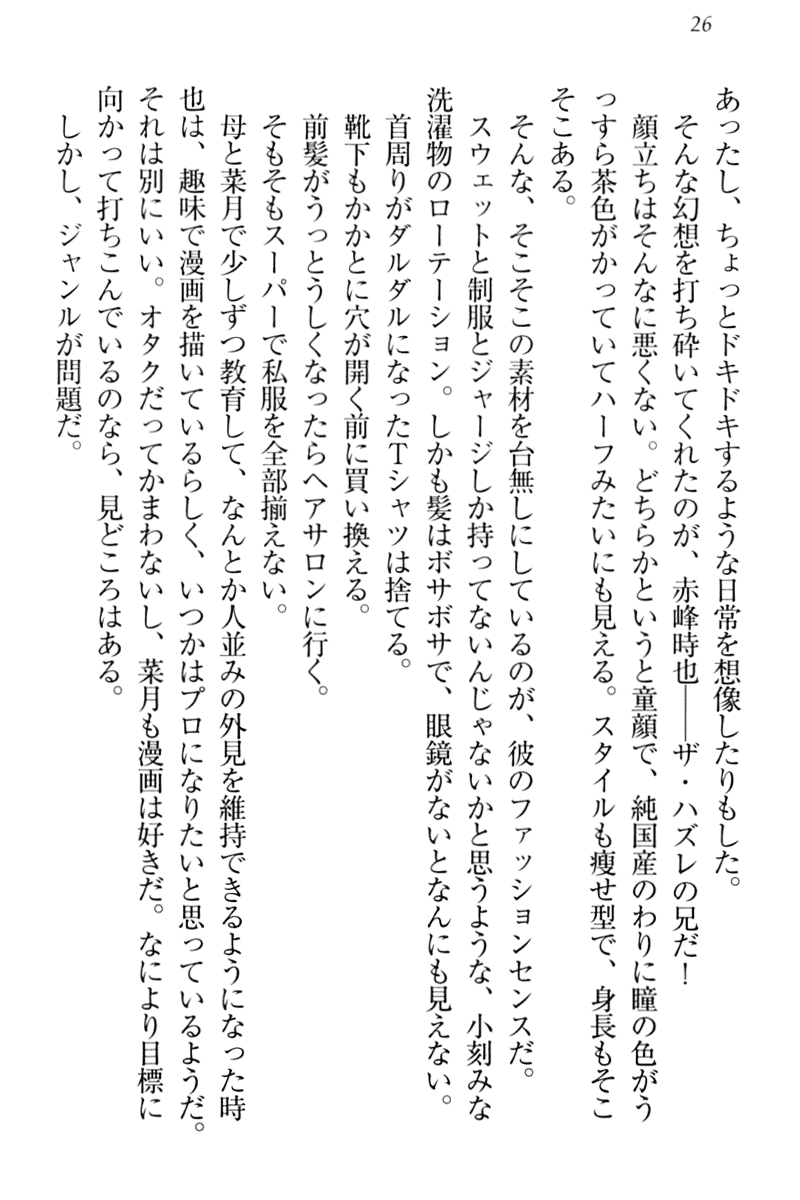 26
あったし、ちょっとドキドキするような日常を想像したりもした。
そんな幻想を打ち砕いてくれたのが、赤峰時也――ザ・ハズレの兄だ！
顔立ちはそんなに悪くない。どちらかというと童顔で、純国産のわりに瞳の色がう
っすら茶色がかっていてハーフみたいにも見える。スタイルも痩せ型で、身長もそこ
そこある。
そんな、そこそこの素材を台無しにしているのが、彼のファッションセンスだ。
スウェットと制服とジャージしか持ってないんじゃないかと思うような、小刻みな
洗濯物のローテーション。しかも髪はボサボサで、眼鏡がないとなんにも見えない。
首周りがダルダルになったTシャツは捨てる。
靴下もかかとに穴が開く前に買い換える。
前髪がうっとうしくなったらヘアサロンに行く。
そもそもスーパーで私服を全部揃えない。
母と菜月で少しずつ教育して、なんとか人並みの外見を維持できるようになった時
也は、趣味で漫画を描いているらしく、いつかはプロになりたいと思っているようだ。
それは別にいい。オタクだってかまわないし、菜月も漫画は好きだ。なにより目標に
向かって打ちこんでいるのなら、見どころはある。
しかし、ジャンルが問題だ。